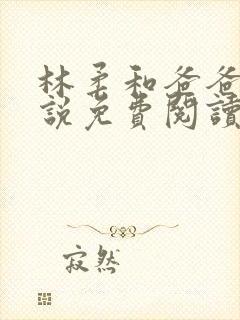 林柔和爸爸
說免費閱讀
寂然